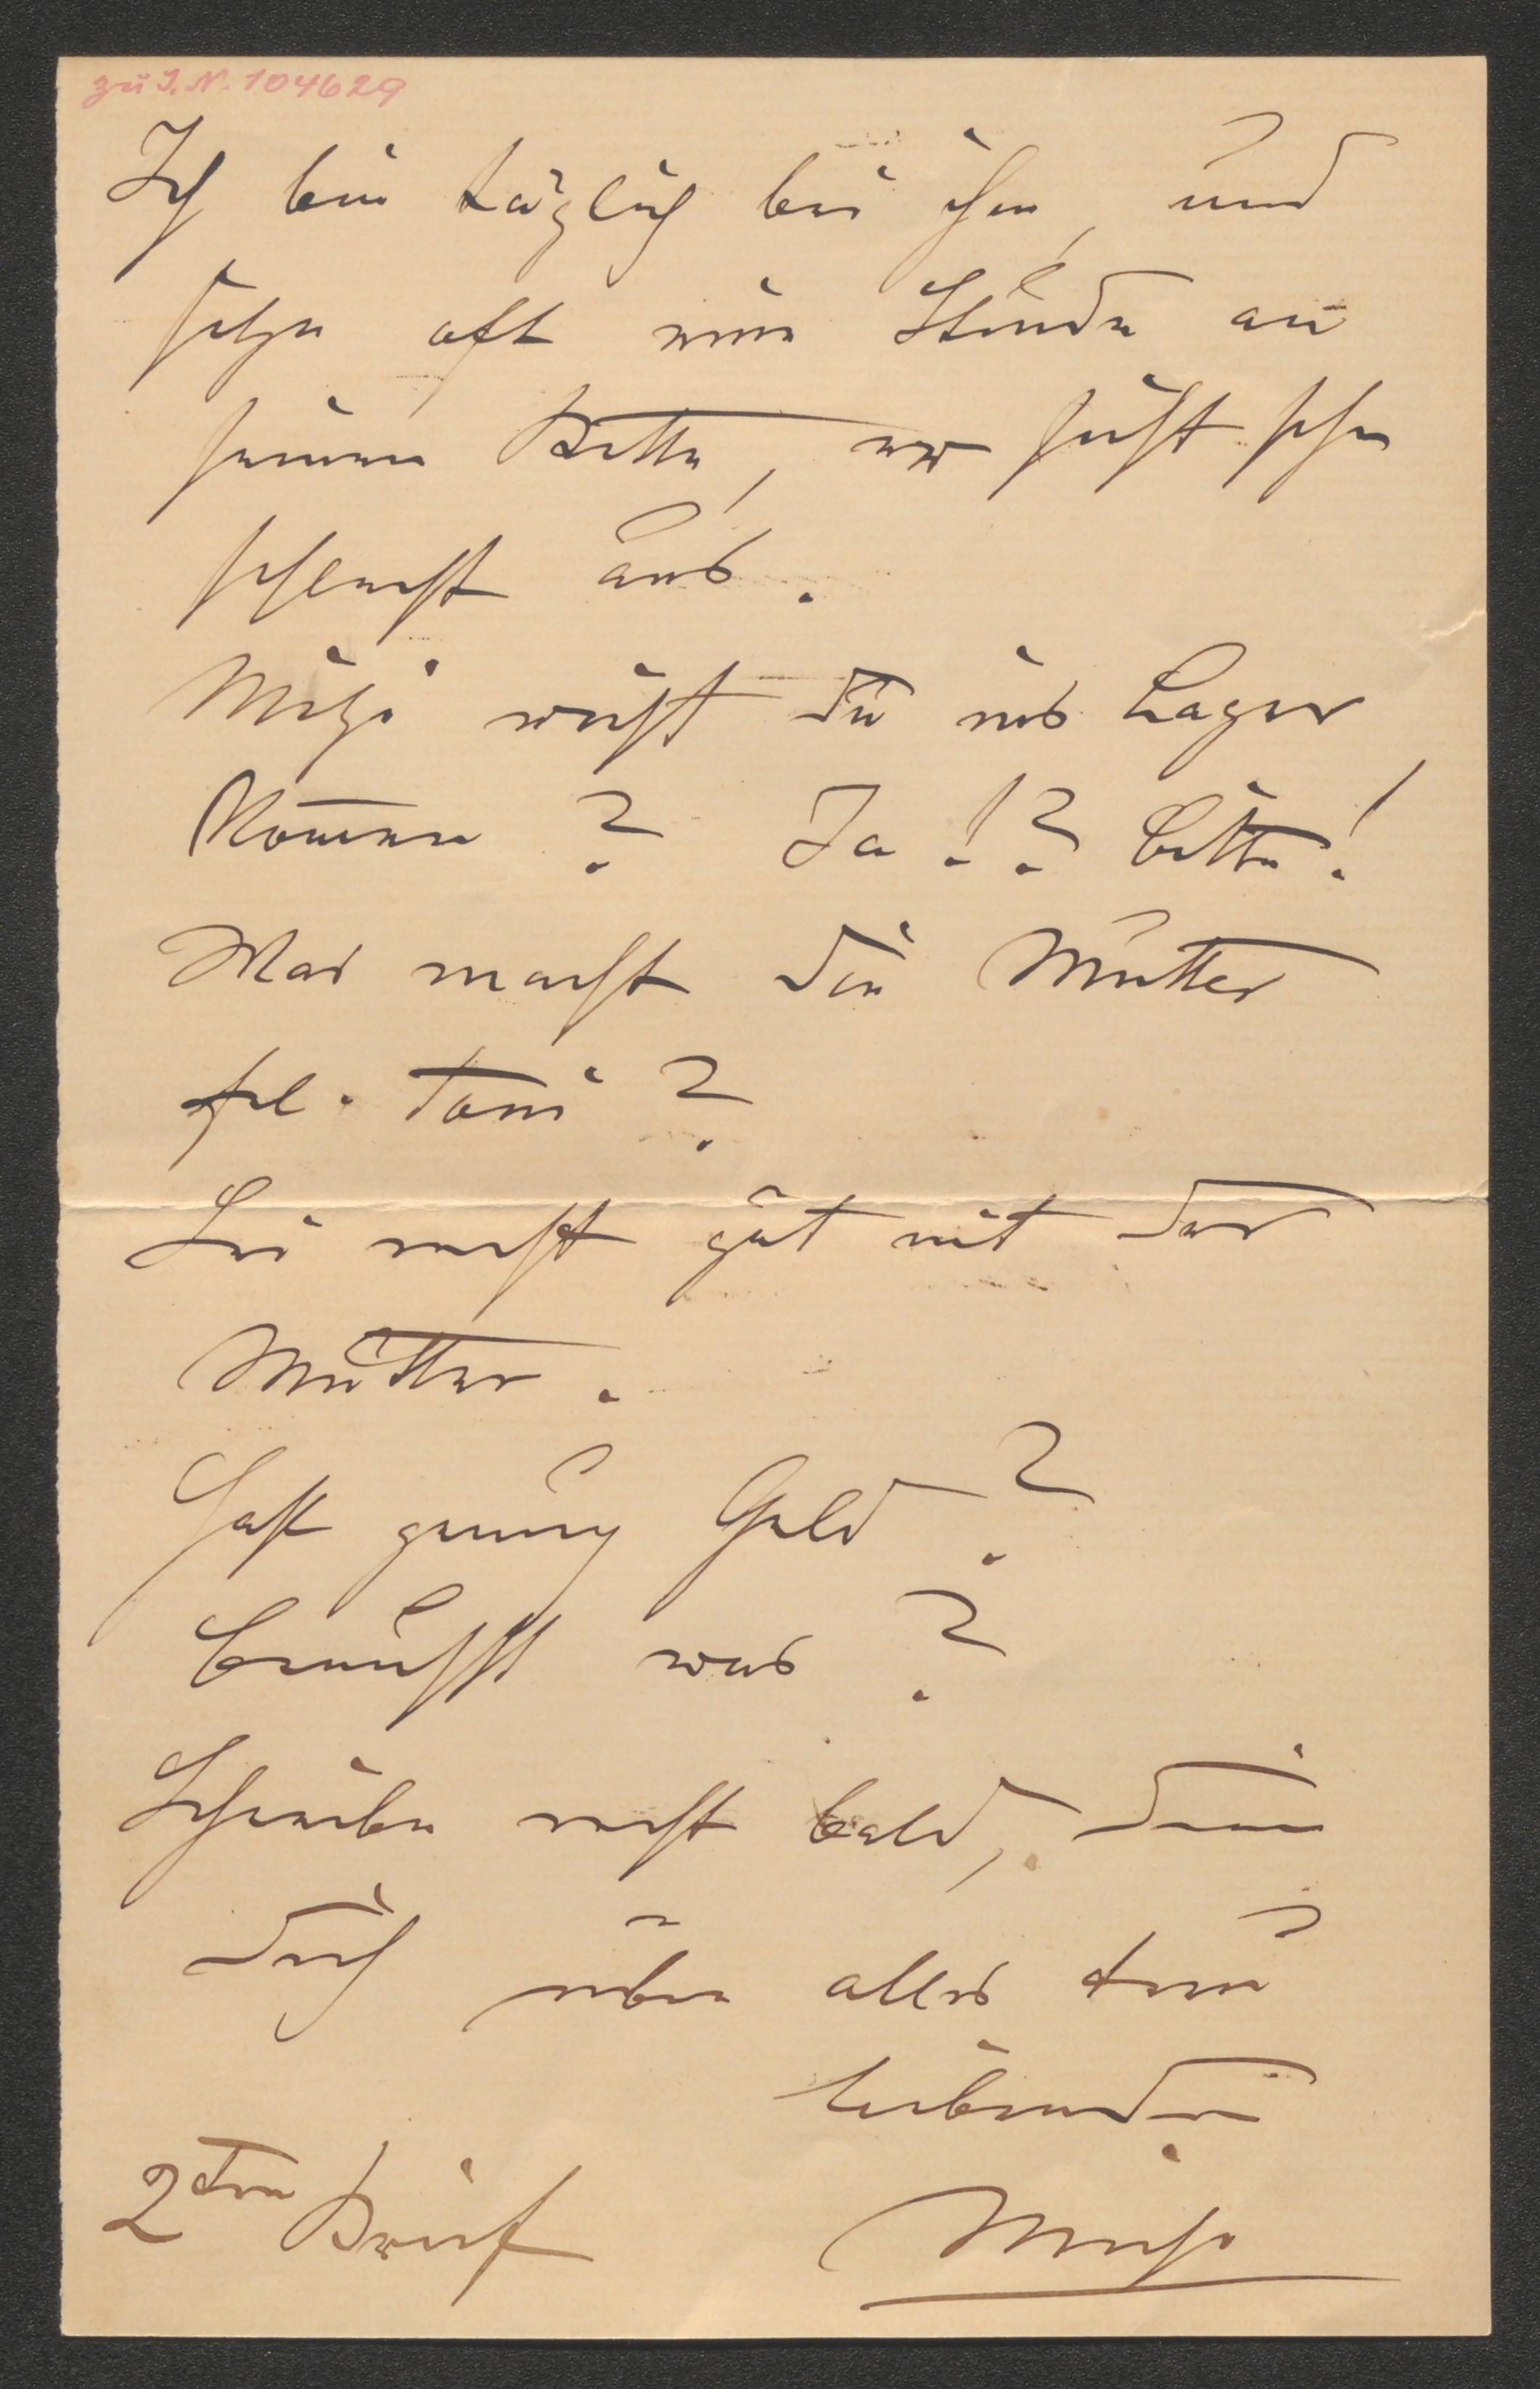 zu I.N. 104629
Ich bin täglich bei ihm, und
sitze oft eine Stunde an
seinem Bette, er sieht sehr
schlecht aus.
Mizi wirst Du ins Lager
kom̅en? Ja!? bitte!
Was macht die Mutter
frl. Toni?
Sei recht gut mit der
Mutter.
Hast genug Geld?
brauchst was?
Schreibe recht bald, Dein
Dich über alles treu
liebender
2ten Brief